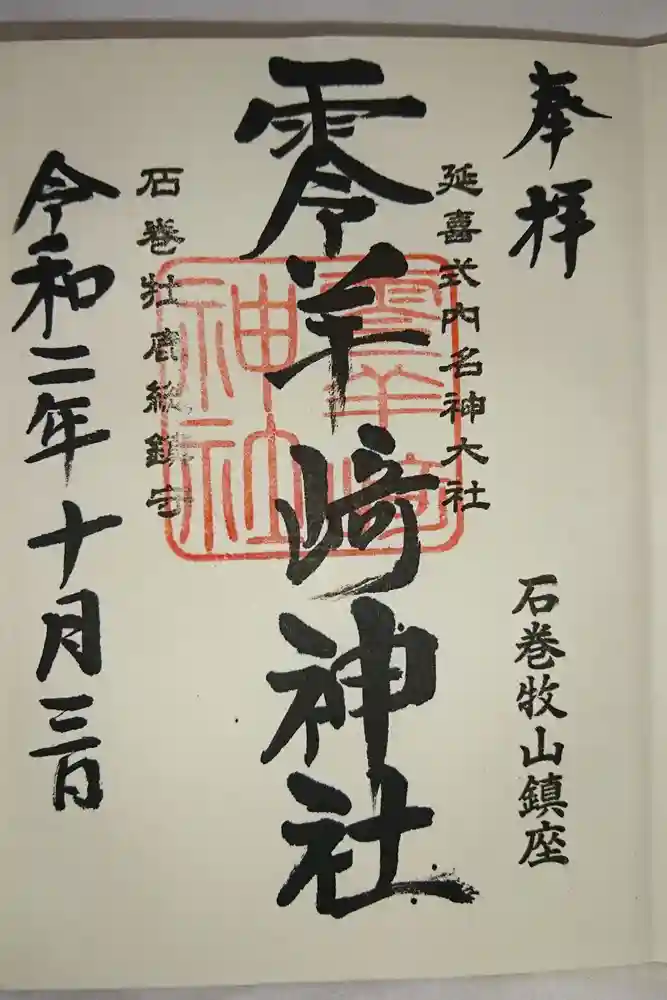 奉拝
石巻牧山鎮座
延喜式内名神大社
零羊崎神社
零羊崎神社
石巻牡鹿総鎮守
令和二年十月三日